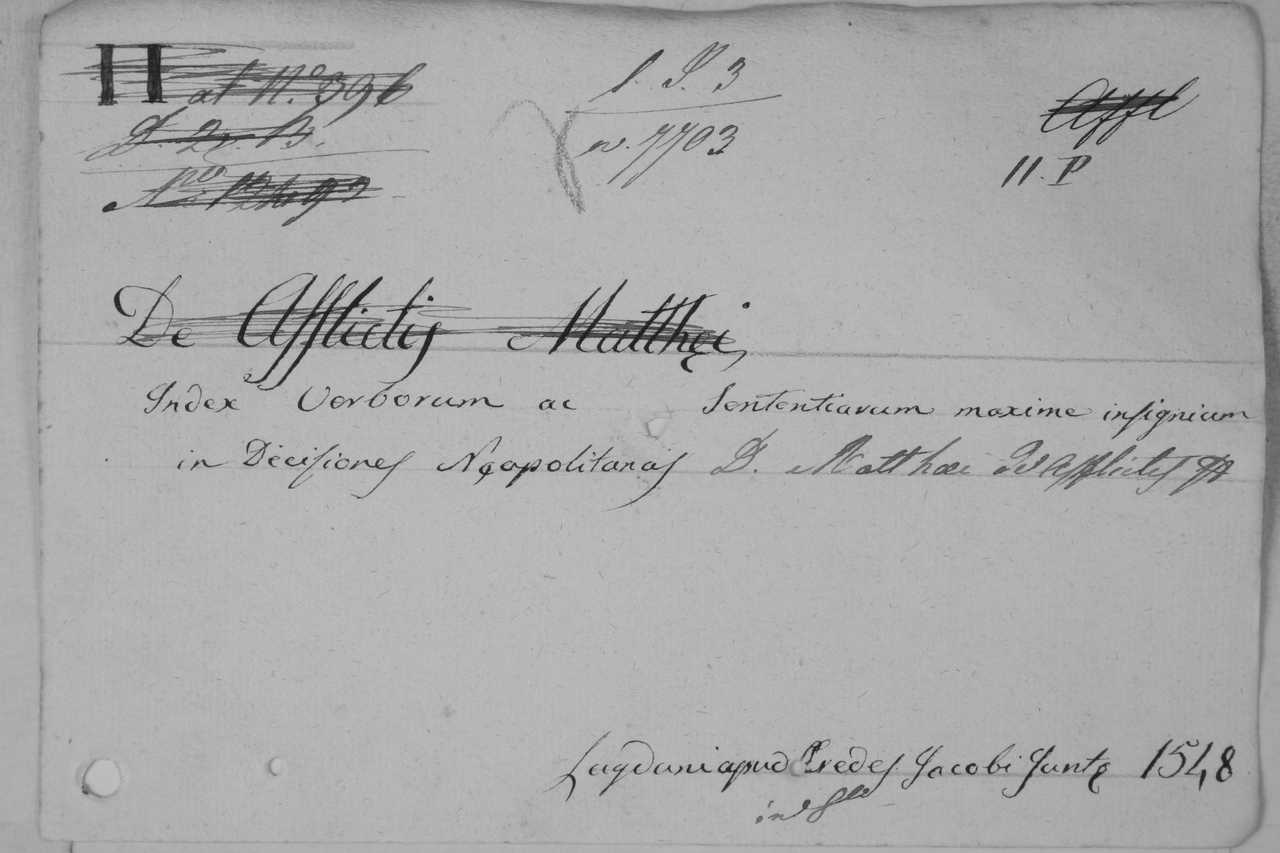 H
at N.º 396
D. 2. B.
Nro
l. P. 3
n. 7703
Affl
11. P
De Afflictis Matthęi,
Index Verborum ac Sententiarum maxime insignium
in Decisiones Neapolitanas D. Matthæi De Afflictis
Lugduni apud Hredes Jacobi Juntę 1548
in 8vo